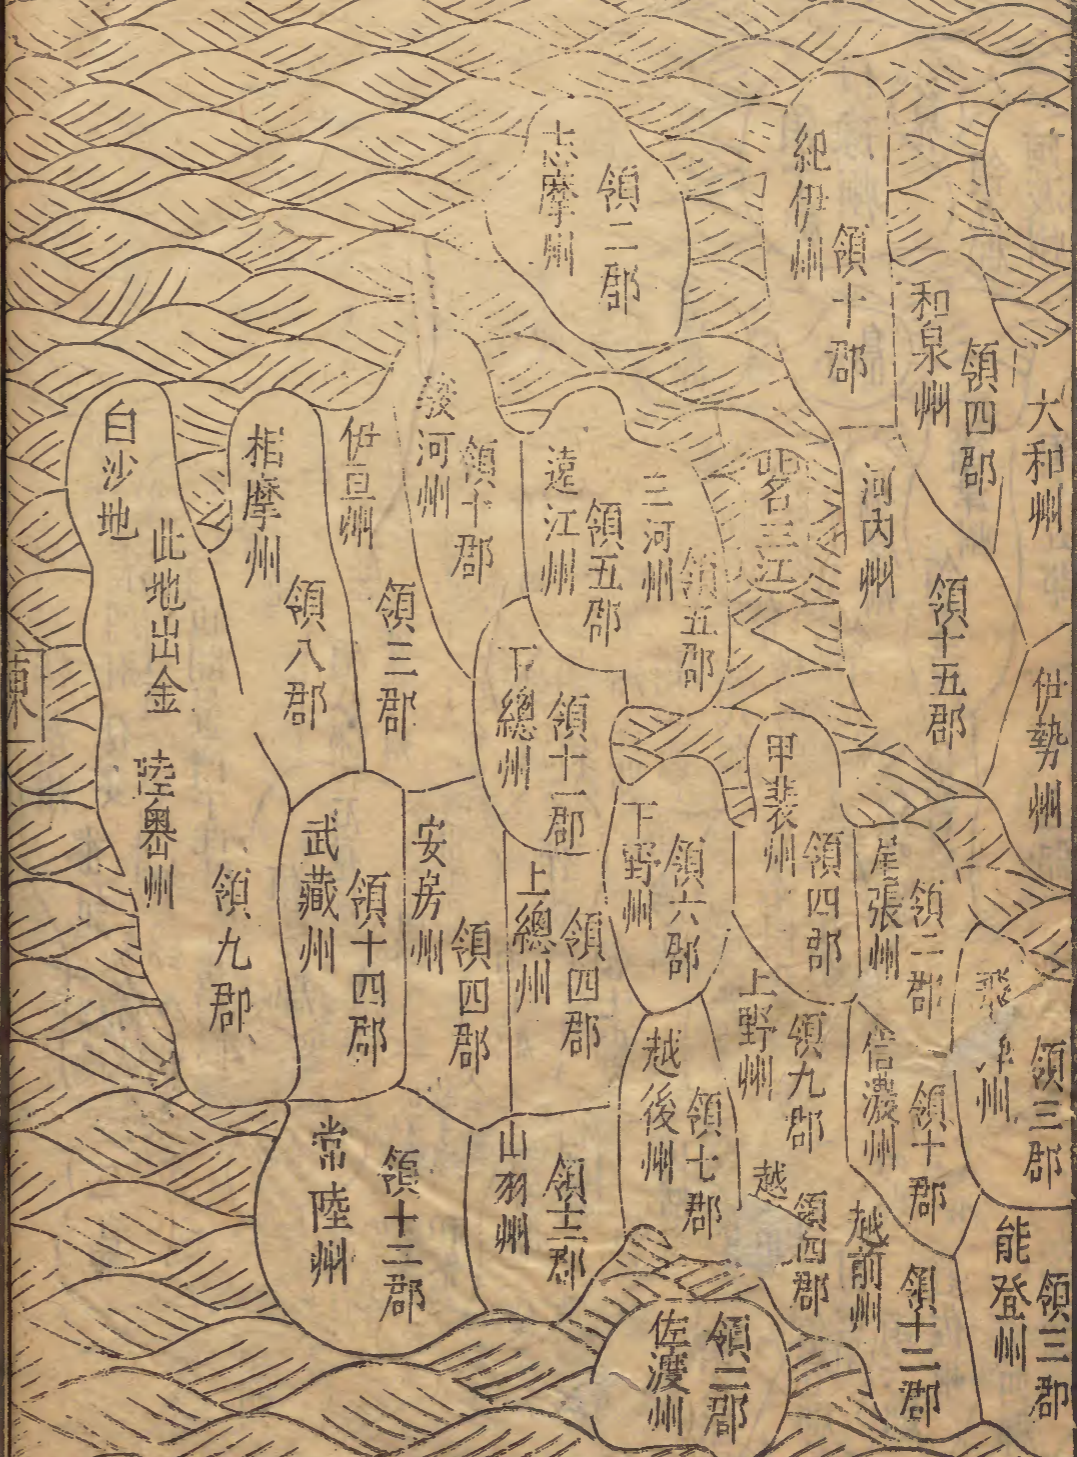 紀伊州
領十郡
和泉州
領四郡
大和州
志摩州
領二郡
河內州
領十五郡
伊勢州
三河州
領五郡
遠江州
領五郡
駿河州
領十郡
伊豆州
領三郡
相摩州
領八郡
白沙地
此地出金
陸奧州
領九郡
東
下總州
領十一郡
甲裴州
領四郡
尾張州
領二郡
下野州
領六郡
上總州
領四郡
安房州
領四郡
武藏州
領十四郡
州
領三郡
信濃州
領十郡
上野州
領九郡
越後州
領七郡
越
領四郡
越前州
領十二郡
能登州
領三郡
山羽州
領十二郡
常陸州
領十二郡
佐渡州
領三郡